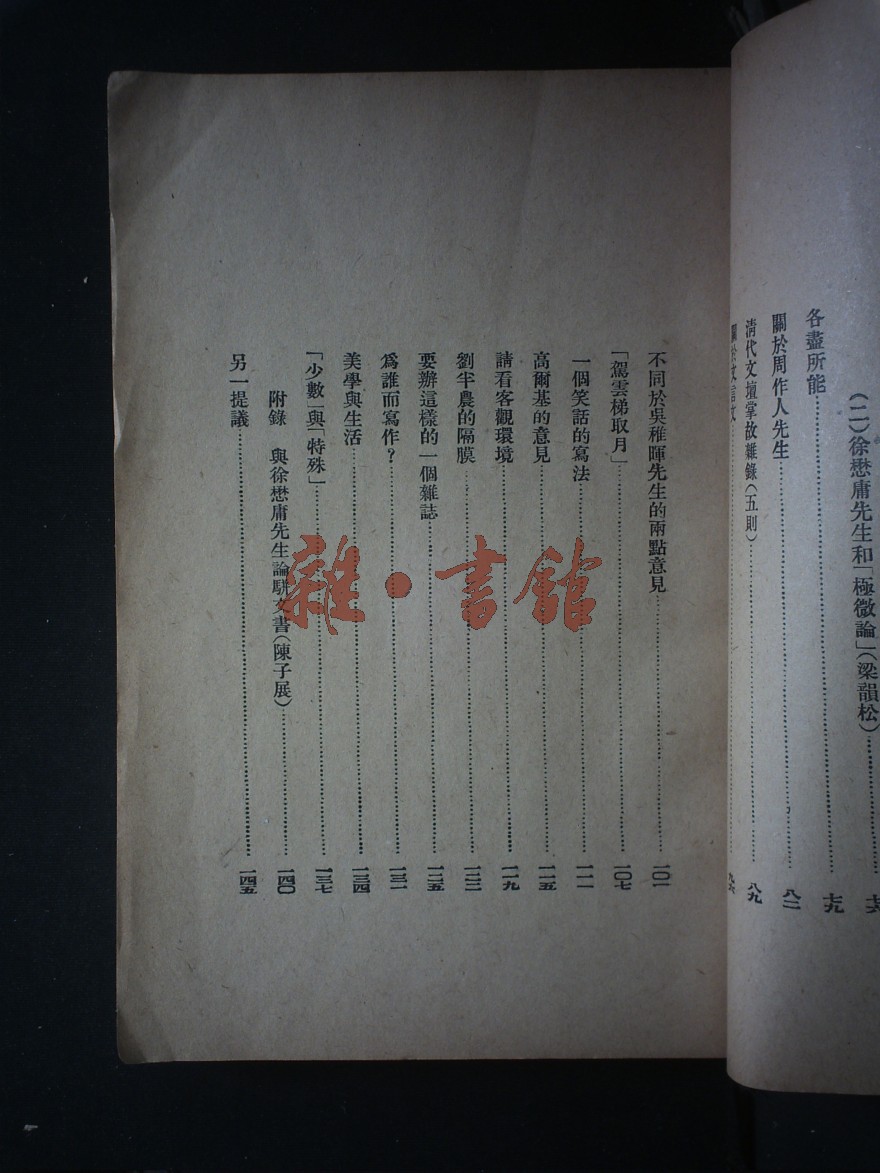 (二)徐懋庸先生和「極微論」(梁韻松)……七六
各盡所能……七九
關於周作人先生……八二
清代文壇掌故雜錄(五則)……八九
關於文言文……
不同於吳稚暉先生的兩點意見……一〇一
「駕雲梯取月」……一〇七
一個笑話的寫法……一一一
高爾基的意見……一一五
請看客觀環境……一一九
劉半農的隔膜……一二二
要辦這樣的一個雜誌……一二五
爲誰而寫作?……一三一
美學與生活……一三四
「少數」與「特殊」……一三七
附錄 與徐懋庸先生論駢文書(陳子展)……一四〇
另一提議……一四五
雜·書館